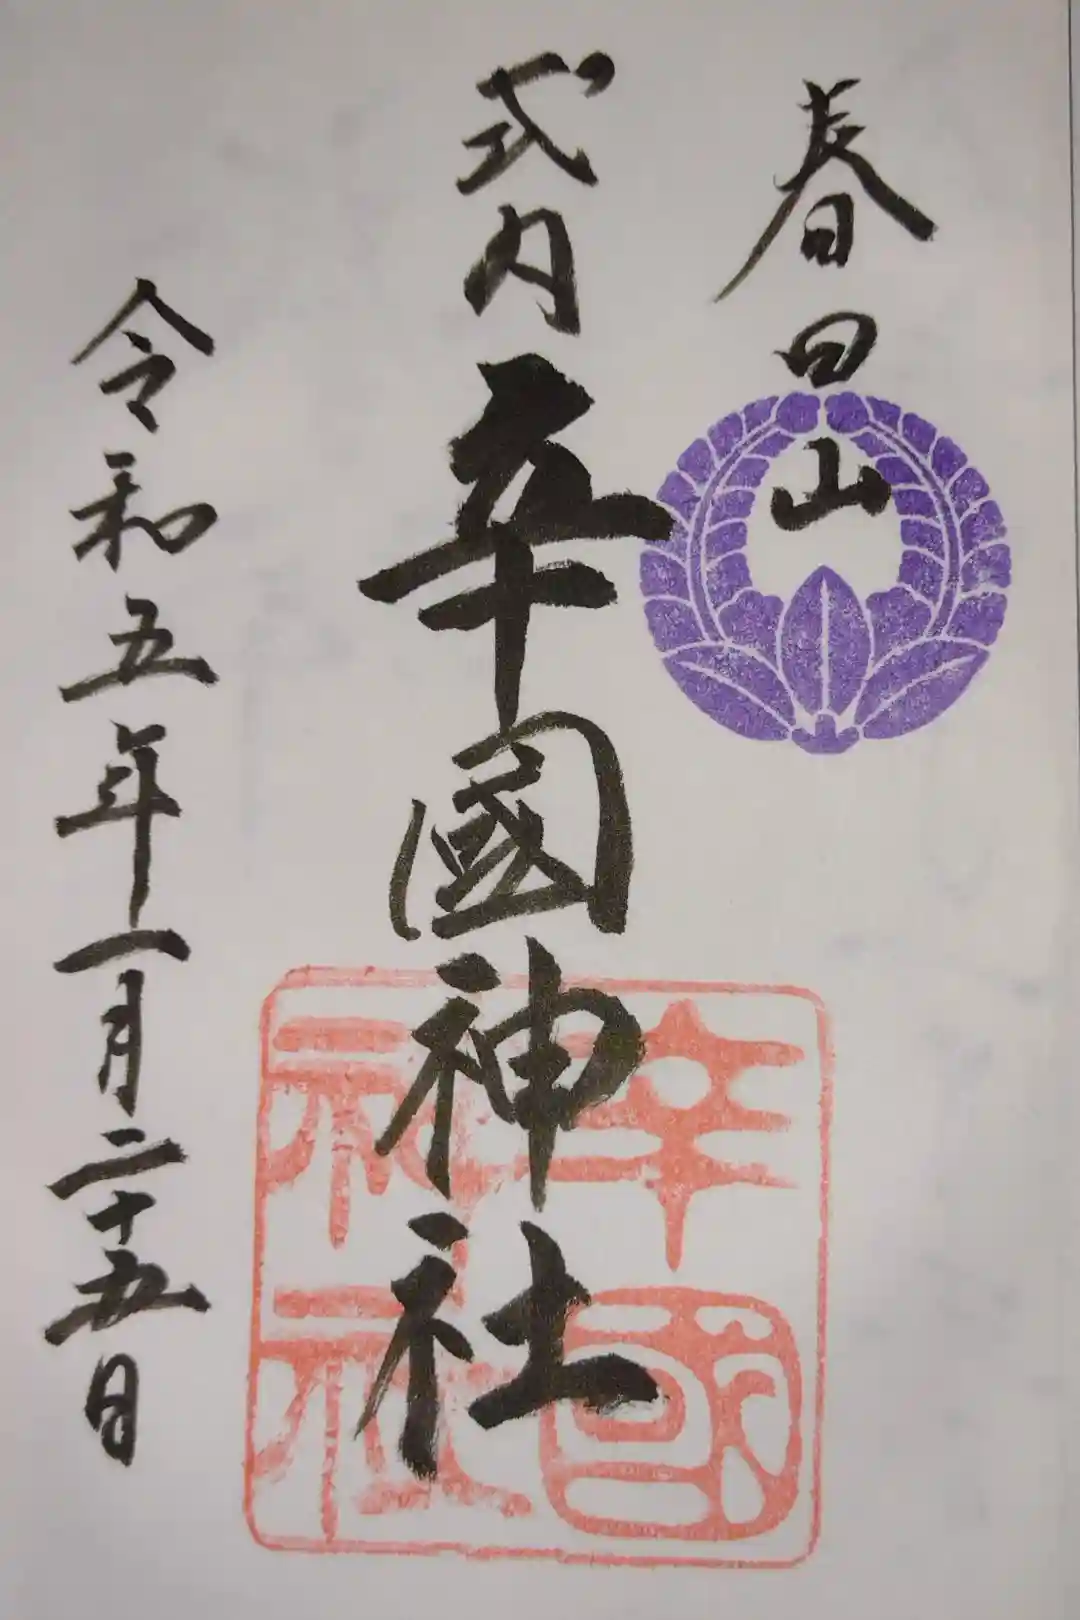 春日山
式内辛國神社
令和五年一月二十五日
辛國神社